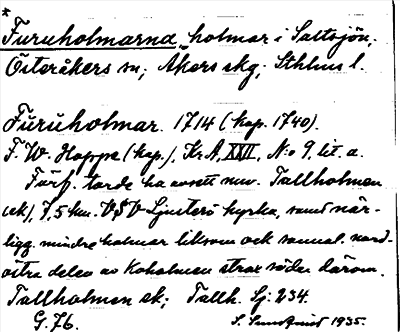 *
Furuholmarna, holmar i Saltsjön;
Österåkers sn; Åkers skg; Sthlms l.
Furuholmar. 1714 (kop. 1740).
F. W. Hoppe (kop.), Kr. A, XXII, N:o 9, lit. a.
Förf. torde ha avsett nuv. Tallholmen
(ek), 7,5 km. V§V Ljusterö kyrka, samt när-
ligg. mindre holmar liksom ock sannol. nord-
östra delen av Koholmen strax söder därom.
Tallholmen ek; Tallh. Sj: 234.
G. 76.
S. Sundqvist 1935.